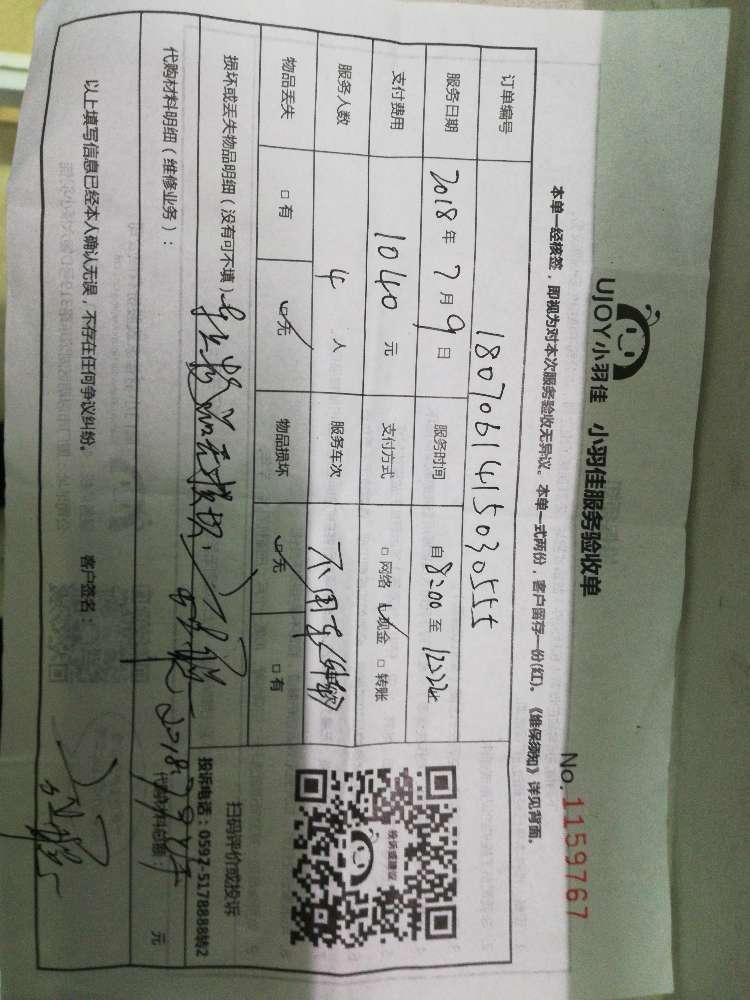 UJOY小羽佳 小羽佳服务验收单
No. 1159767
本单一经核签，即视为对本次服务验收无异议。本单一式两份，客户留存一份(红)。《维保须知》详见背面。
订单编号 180706141503055
服务日期 2018年7月9日 服务时间 自8:00至
支付费用 1040元 支付方式 □网络 ☑现金 □转账
服务人数 4人 服务车次 不用车
物品丢失 □有 ☑无 物品损坏 ☑无 □有
投诉或建议
扫码评价或投诉
投诉电话：0592-5178888转2
损坏或丢失物品明细（没有可不填）
代购材料明细（维修业务）： 代购材料总额： 元
以上填写信息已经本人确认无误，不存在任何争议纠纷。 客户签名：